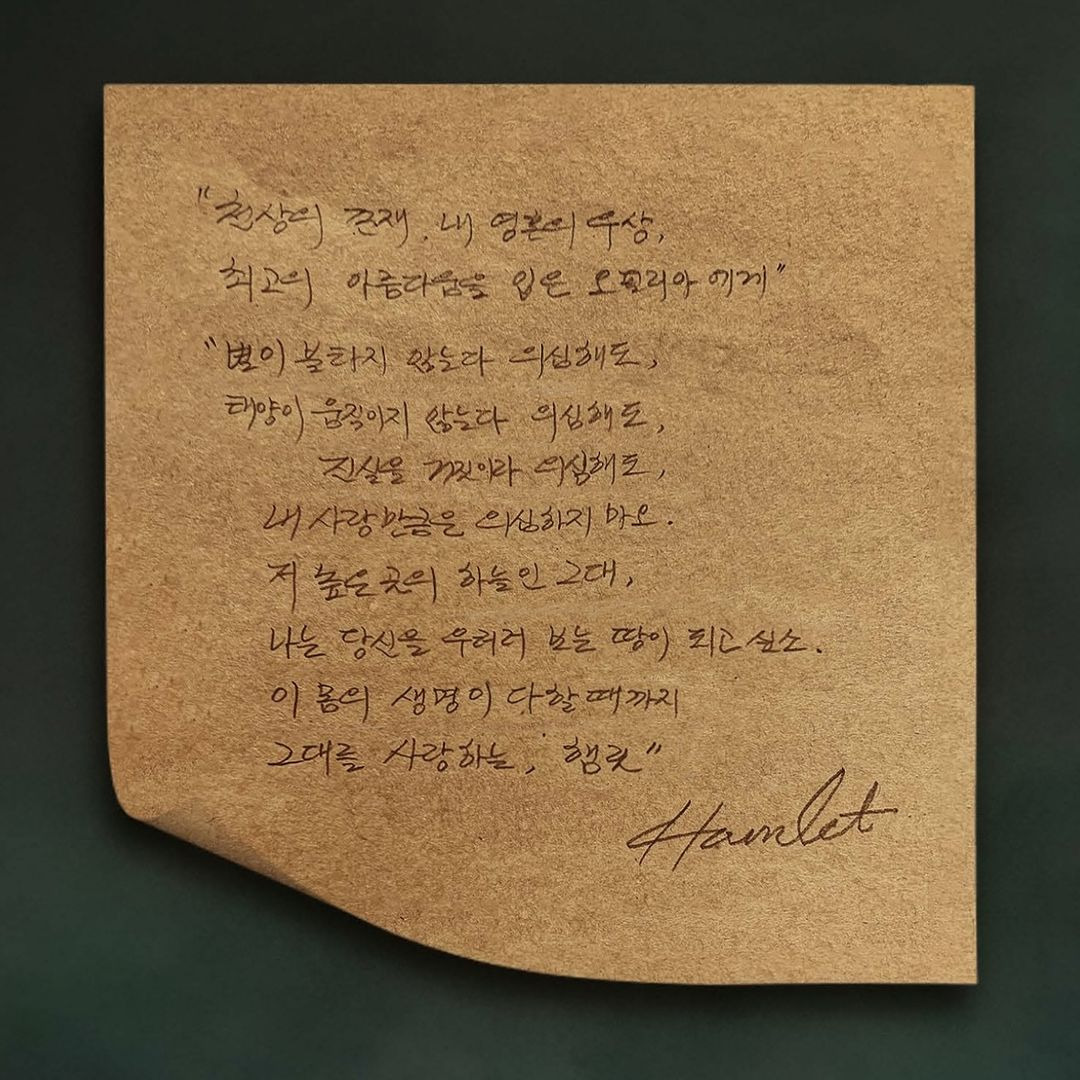 "천상의 존재, 내 영혼의 우상,
최고의 아름다움을 입은 오필리아에게"
"별이 불타지 않는다 의심해도,
태양이 움직이지 않는다 의심해도,
진실을 거짓이라 의심해도,
내 사랑만큼은 의심하지 마오.
저 높은 곳의 하늘인 그대,
나는 당신을 우러러 보는 땅이 되고 싶소.
이 몸의 생명이 다할 때까지
그대를 사랑하는, 햄릿"
Hamlet